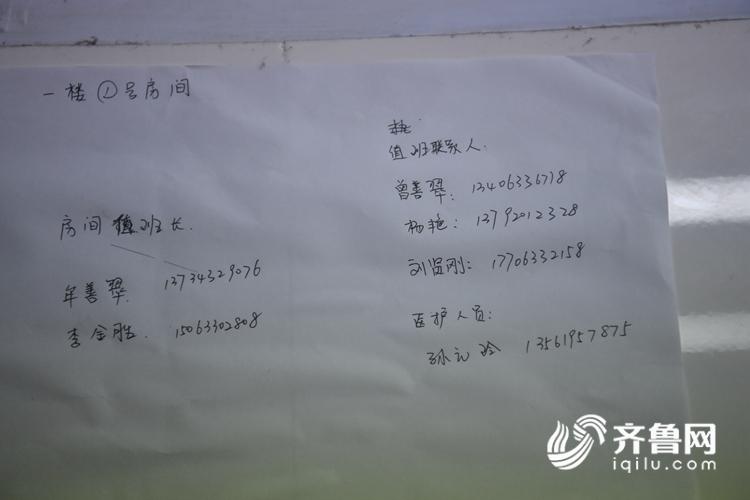 一楼①号房间
房间值班长.
牟善翠. 13734329076
李金胜. 15063302808
值班联系人.
曾善翠: 13406336718
杨艳: 13792012328
刘贤刚: 17706332158
医护人员:
孙元玲 13561957875
齐鲁网
iqilu.com